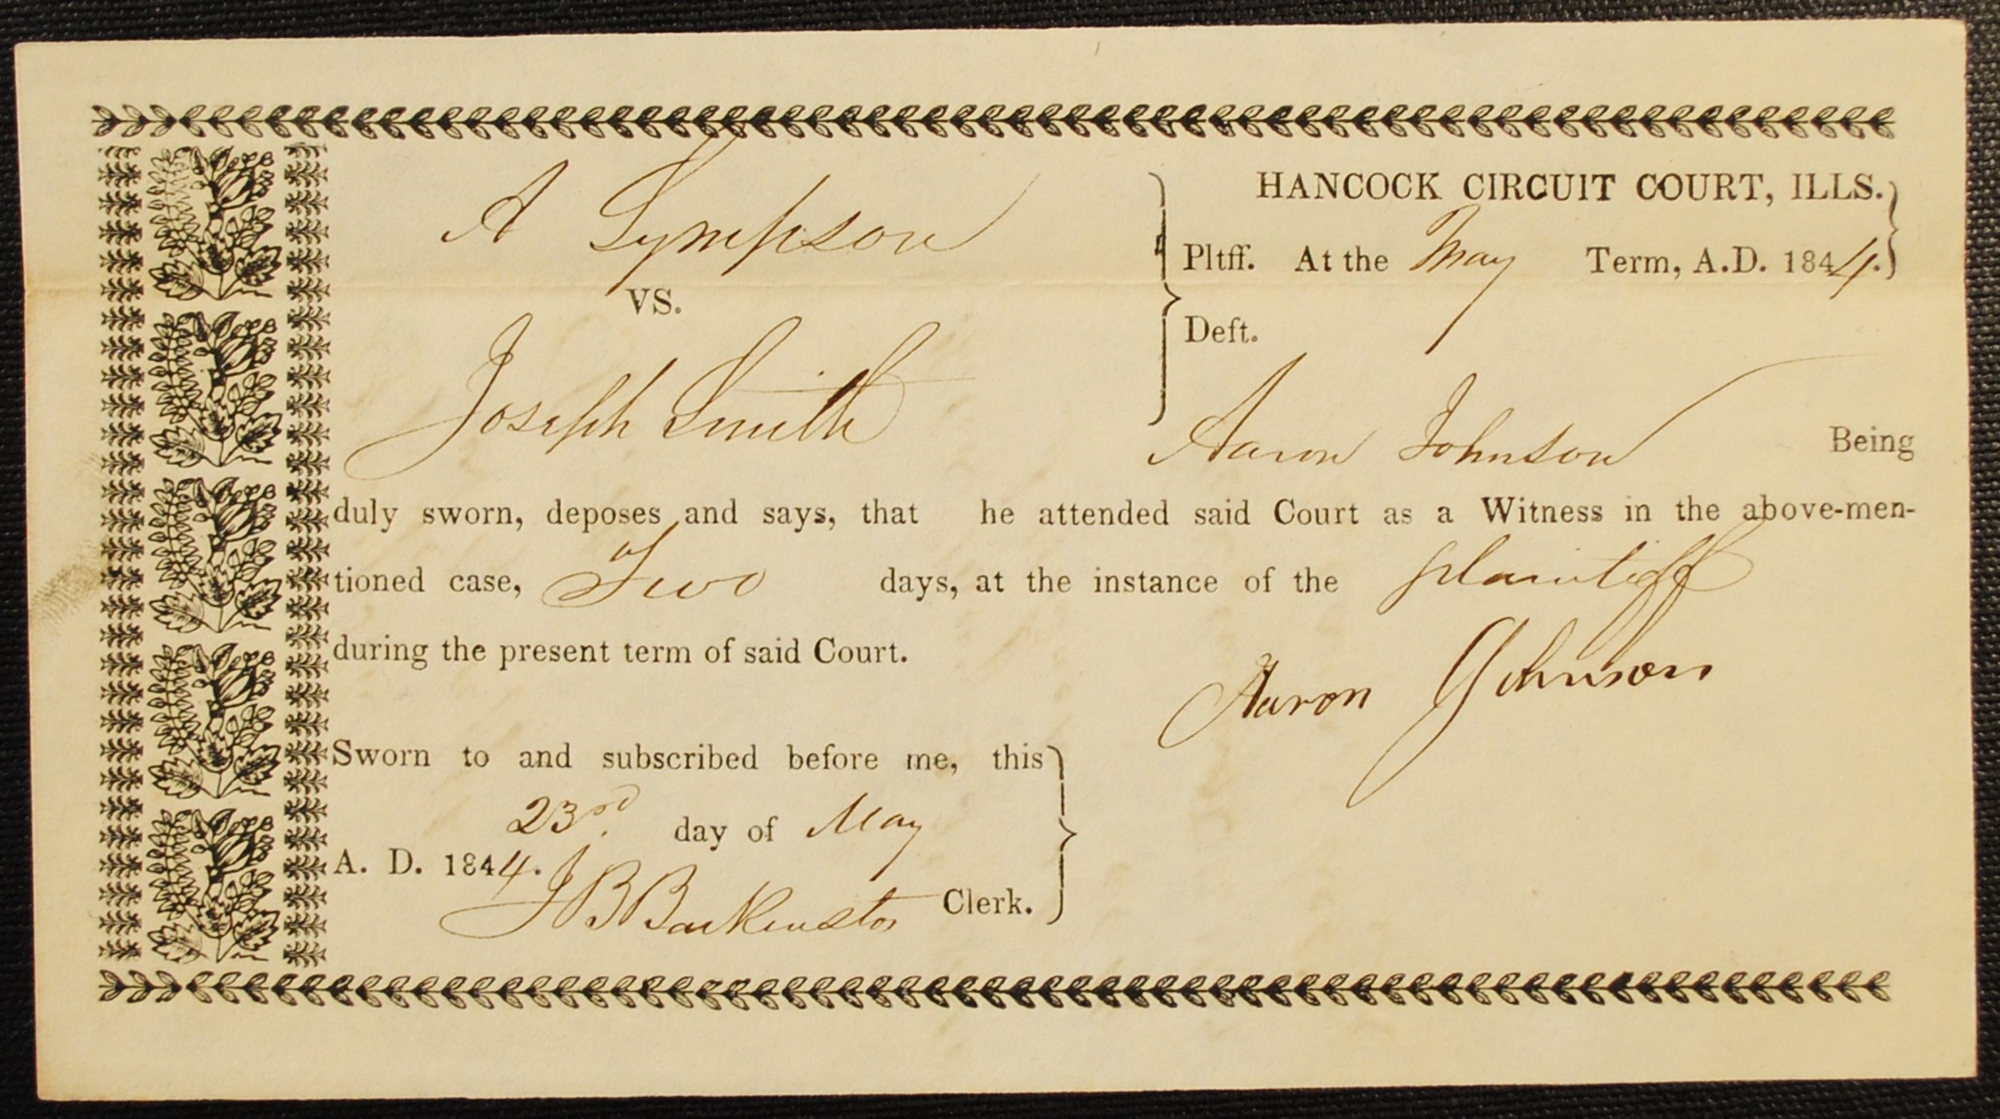 HANCOCK CIRCUIT COURT, ILLS.
A Sympson
Pltff. At the May Term, A.D. 1844.
VS.
Deft.
Joseph Smith
Aaron Johnson Being
duly sworn, deposes and says, that he attended said Court as a Witness in the above-men-
tioned case, Two days, at the instance of the plaintiff
during the present term of said Court.
Aaron Johnson
Sworn to and subscribed before me, this
23rd. day of May
A. D. 1844.
J B Backenstos Clerk.